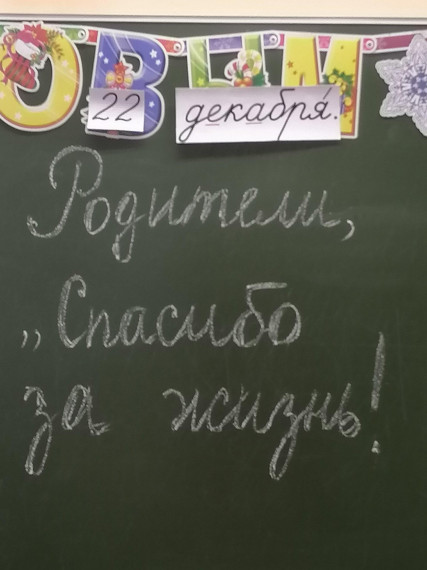 ОВЫМ
22 декабря́.
Родители,
„Спасибо
за жизнь!